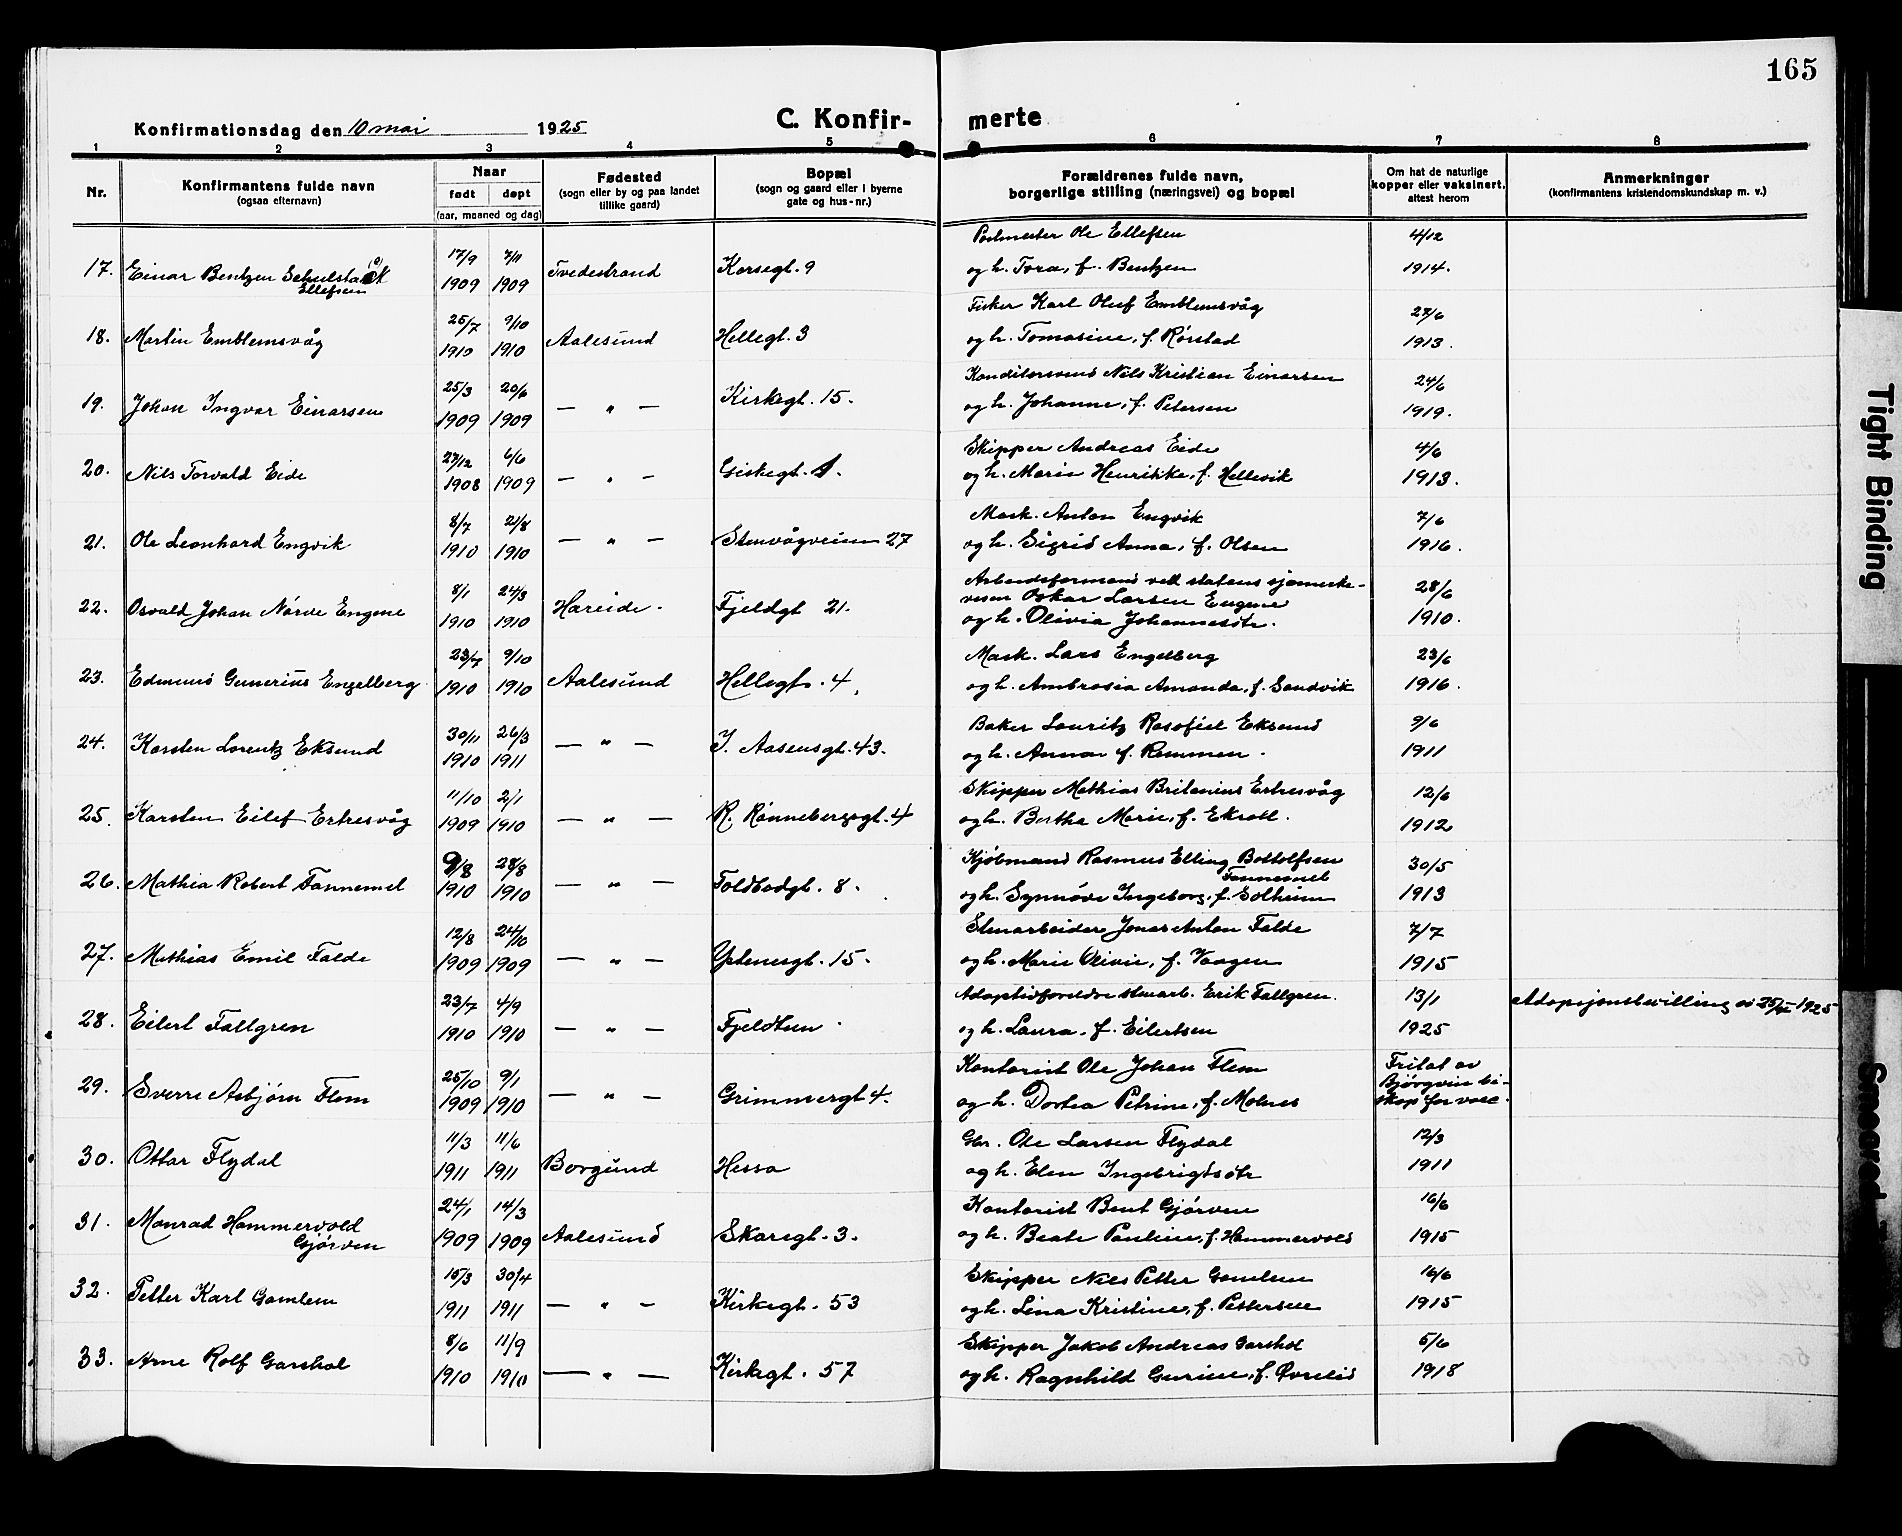 165
Konfirmationsdag den 10 mai 1925
C. Konfir-merte
1 2 3 4 5 6 7 8
Nr.
Konfirmantens fulde navn
(ogsaa efternavn)
Naar
født døpt
(aar, maaned og dag)
Fødested
(sogn eller by og paa landet
tillike gaard)
Bopæl
(sogn og gaard eller i byerne
gate og hus-nr.)
Forældrenes fulde navn,
borgerlige stilling (næringsvei) og bopæl
Om hat de naturlige
kopper eller vaksinert,
attest herom
Anmerkninger
(konfirmantens kristendomskundskap m. v.)
17/9 7/11 Postmester Ole Ellefsen 4/12
17. Einar Bentzen Schulstack 1909 1909 Tvedestrand Korsegt. 9 og h. Tora, f. Bentzen 1914.
Ellefsen
25/7 9/10 Fisker Karl Oluf Emblemsvåg 27/6
18. Martin Emblemsvåg 1910 1910 Aalesund Hellegt. 3 og h. Tomasine, f. Rørstad 1913.
25/3 20/6 Konditorsvend Nils Kristian Einarsen 24/6
19. Johan Ingvar Einarsen 1909 1909 — " — Kirkegt. 15. og h. Johanne, f. Petersen 1919.
27/12 6/6 Skipper Andreas Eide 4/6
20. Nils Torvald Eide 1908 1909 — " — Giskegt. 1. og h. Marie Henrikke, f. Hellevik 1913.
8/7 21/8 Mask. Anton Engvik 7/6
21. Ole Leonhard Engvik 1910 1910 — " — Stenvågveien 27 og h. Sigrid Anna, f. Olsen 1916.
8/1 24/3 Arbeidsformand ved statens sjømerke-
22. Osvald Johan Nørve Engene Hareide. Fjeldgt 21. vesen Oskar Larsen Engene 28/6
1910 1910 og h. Olivia Johannesdtr. 1910.
23/7 9/10 Mask. Lars Engelberg 23/6
23. Edmund Gunerius Engelberg 1910 1910 Aalesund Hellegt. 4. og h. Ambrosia Amanda, f. Sandvik 1916.
30/11 26/3 Baker Lauritz Rasofiel Eksund 9/6
24. Karsten Lorentz Eksund 1910 1911 — " — I. Aasensgt. 43. og h. Anna f. Remmen. 1911
11/10 2/1 Skipper Mathias Britanius Ertresvåg 12/6
25. Karsten Eilef Ertresvåg 1909 1910 — " — R. Rønnebergsgt. 4 og h. Bertha Marie, f. Ekroll. 1912
9/8 28/8 Kjøbmand Rasmus Elling Bottolfsen 30/5
Fannemel
26. Mathia Robert Fannemel 1910 1910 — " — Toldbodgt. 8. og h. Synnøve Ingeborg, f. Solheim 1913
12/8 24/10 Stenarbeider Jonas Anton Falde 7/7
27. Mathias Emil Falde 1909 1909 — " — Ystenesgt. 15. og h. Marie Olivie, f. Vaagen 1915
23/7 4/9 Adoptivforeldre stenarb. Erik Fallgren. 13/1 Adopsjonsbevilling av 25/ 1925
28. Eilert Fallgren 1910 1910 — " — Fjeldtun. og h. Laura, f. Eilertsen 1925
25/10 9/1 Kontorist Ole Johan Flem Fritat av
29. Sverre Asbjørn Flem — " — Grimmergt 4. Bjørgvin bi-
1909 1910 og h. Dortea Petrine, f. Molnes skop for vacc.
11/3 11/6 Gbr. Ole Larsen Flydal 12/3
30. Ottar Flydal 1911 1911 Borgund Hessa og h. Elen Ingebrigtsdtr 1911
24/1 14/3 Kontorist Bent Gjørven 16/6
31. Monrad Hammervold 1909 1909 Aalesund Skaregt. 3. og h. Beate Pauline, f. Hammervold 1915
Gjørven
15/3 30/4 Skipper Nils Petter Gamlem 16/6
32. Petter Karl Gamlem 1911 1911 — " — Kirkegt. 53 og h. Lina Kristine, f. Pettersen 1915
8/6 11/9 Skipper Jakob Andreas Garshol 5/6
33. Arne Rolf Garshol 1910 1910 — " — Kirkegt. 57 og h. Ragnhild Gurine, f. Øvrelid 1918
Tight Binding